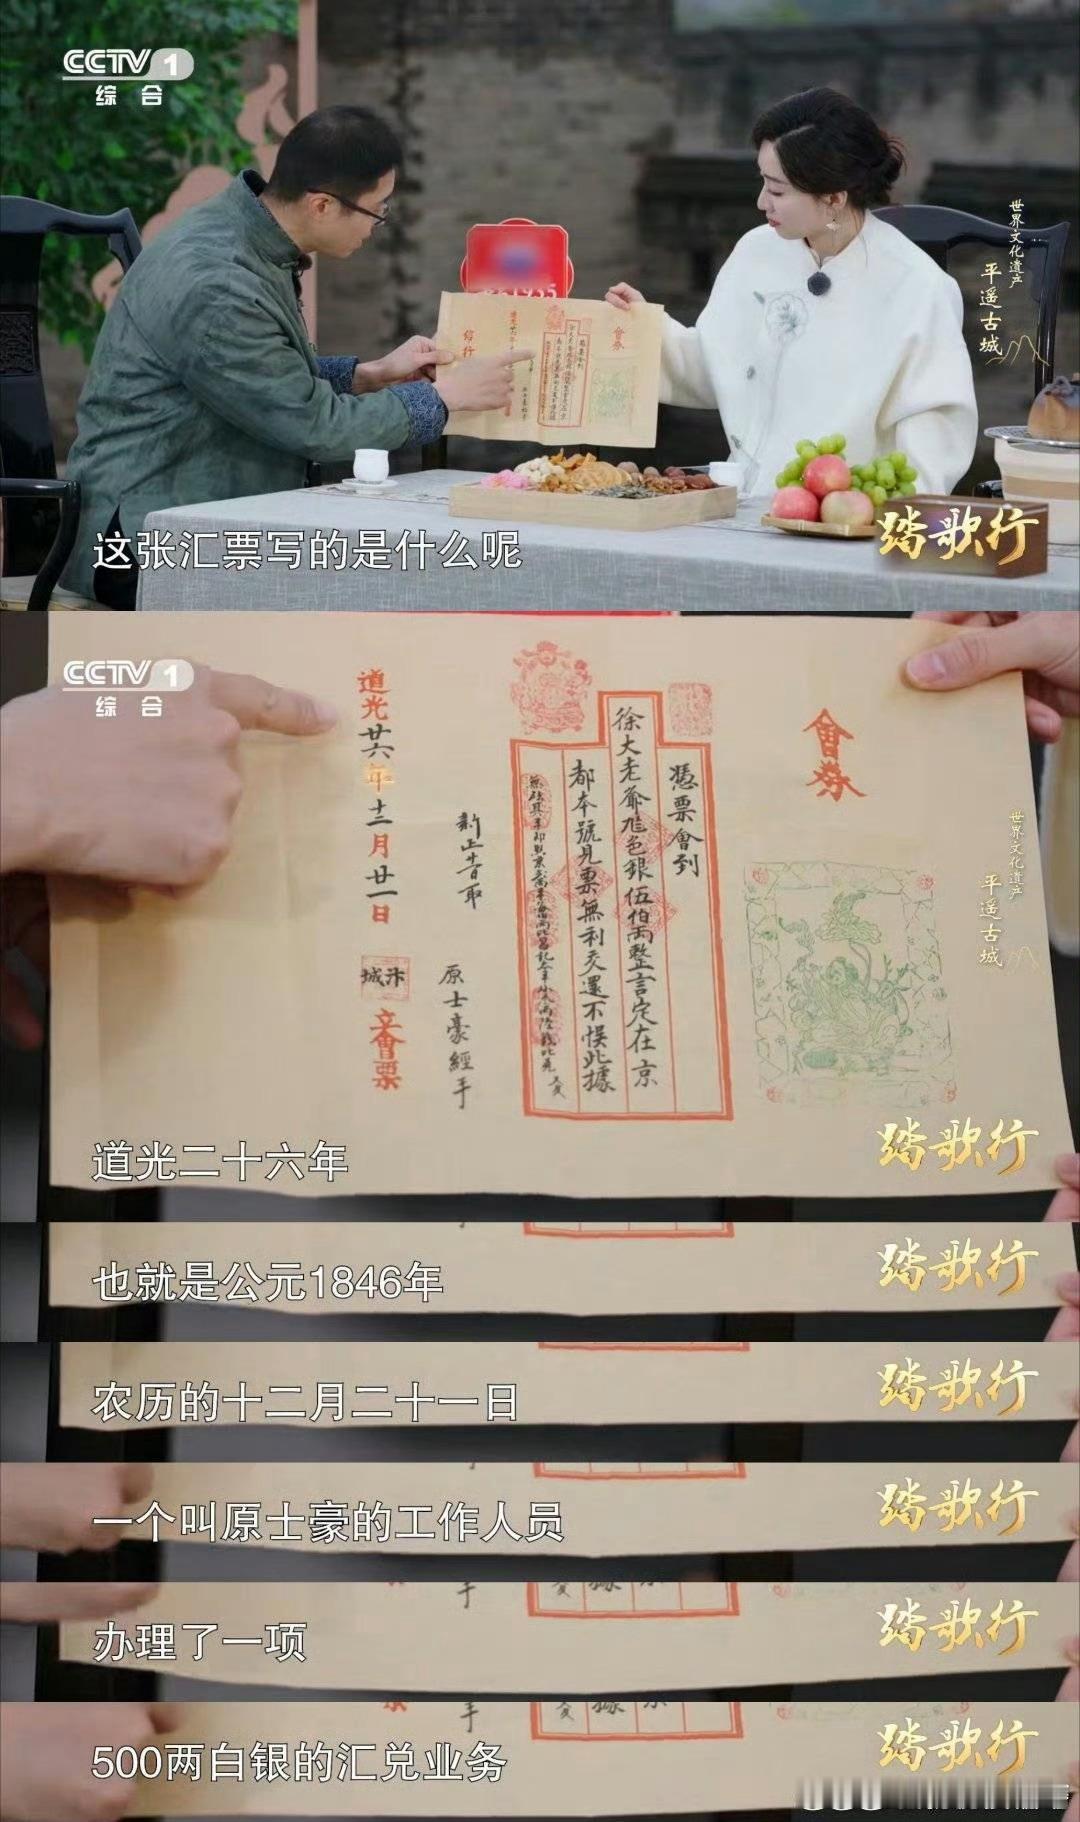 CCTV 1
综合
世界文化遗产
平遥古城
會券
道光廿六年
这张汇票写的是什么呢
踏歌行
CCTV 1
综合
會券
憑票會到
徐大老爺足色銀伍伯兩整言定在京
都本號見票無利交還不悞此據
原士豪經手
道光廿六年十二月廿一日
汴城
立會票
世界文化遗产
平遥古城
道光二十六年
踏歌行
也就是公元1846年
踏歌行
农历的十二月二十一日
踏歌行
一个叫原士豪的工作人员
踏歌行
办理了一项
踏歌行
500两白银的汇兑业务
踏歌行